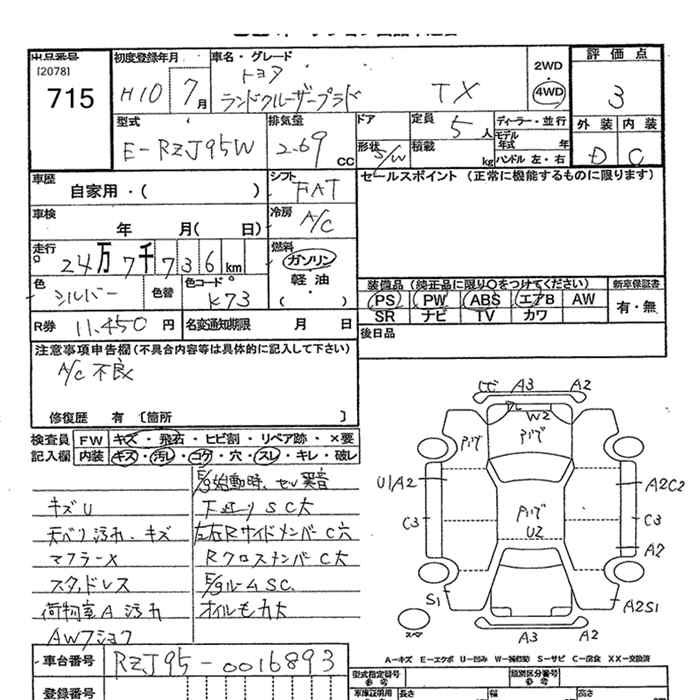 出品番号
[2078]
715
初度登録年月
H10 7月
車名・グレード
トヨタ
ランドクルーザープラド TX
2WD
4WD
評価点
3
外装 内装
D C
型式
E-RZJ95W
排気量
2.69 CC
ドア
形状
S/W
定員
5人
積載 kg
ディーラー・並行
モデル
年式 年
ハンドル 左・右
車歴
自家用・( )
シフト
FAT
セールスポイント (正常に機能するものに限ります)
車検
年 月( 日)
冷房
A/C
走行
24万7千736km
燃料
ガソリン
軽油
( )
色
シルバー
色替
色コード
K73
装備品 (純正品に限り○をつけてください)
新車保証書
PS PW ABS エアB AW
有・無
SR ナビ TV カワ
R券 11,450 円
名変通知期限 月 日
後日品
注意事項申告欄(不具合内容等は具体的に記入して下さい)
A/C不良
修復歴 有 [箇所 ]
検査員
記入欄
FW キズ・飛石・ヒビ割・リペア跡・×要
内装 キズ・汚れ・コゲ・穴・スレ・キレ・破レ
E/g始動時、セル異音
キズU
下廻りSC大
天ベリ汚れ・キズ
左右RサイドメンバーC穴
マフラーX
RクロスメンバーC大
スタッドレス
E/gルームSC
荷物室A汚れ
オイルモレ大
AWフショク
A3 A2
W2
U1/A2
A2C2
C3
U2
C3
A2
S1
A2S1
A3 A2
A-キズ E-エクボ U-凹み W-補修跡 S-サビ C-腐食 XX-交換済
車台番号
RZJ95-0016893
登録番号
型式指定番号
参考
類別区分番号
参考
車庫証明用
長さ 幅 高さ